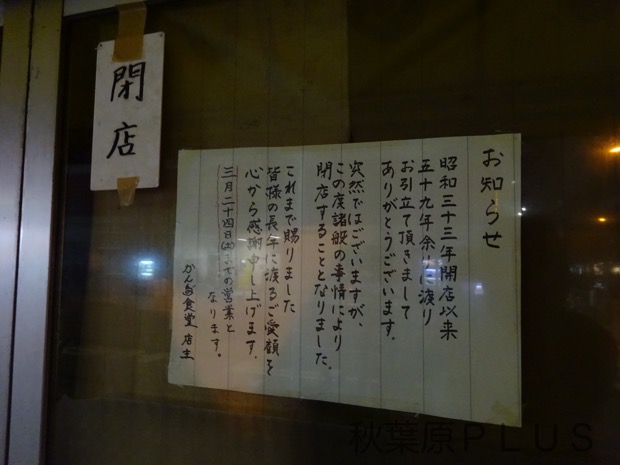 閉店
お知らせ
昭和三十三年開店以来
五十九年余りに渡り
お引立て頂きまして
ありがとうございます.
突然ではございますが、
この度諸般の事情により
閉店することとなりました.
これまで賜りました
皆様の長年に渡るご愛顧を
心から感謝申し上げます.
三月二十四日(土)までの営業と
なります。
かんだ食堂 店主
秋葉原PLUS